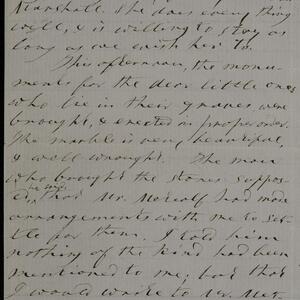 Marshall. She does every thing
well, & is willing to stay as
long as we wish her to.
This afternoon, the monu-
ments for the dear little ones
who lie in their graves, were
brought, & erected in proper order.
The marble is very beautiful,
& well wrought. The man
who brought the stones suppos-
ed, he said, that Mr. Metcalf had made
arrangements with me to set-
tle for them. I told him
nothing of the kind had been
mentioned to me; but that
I would write to Mr. Met-